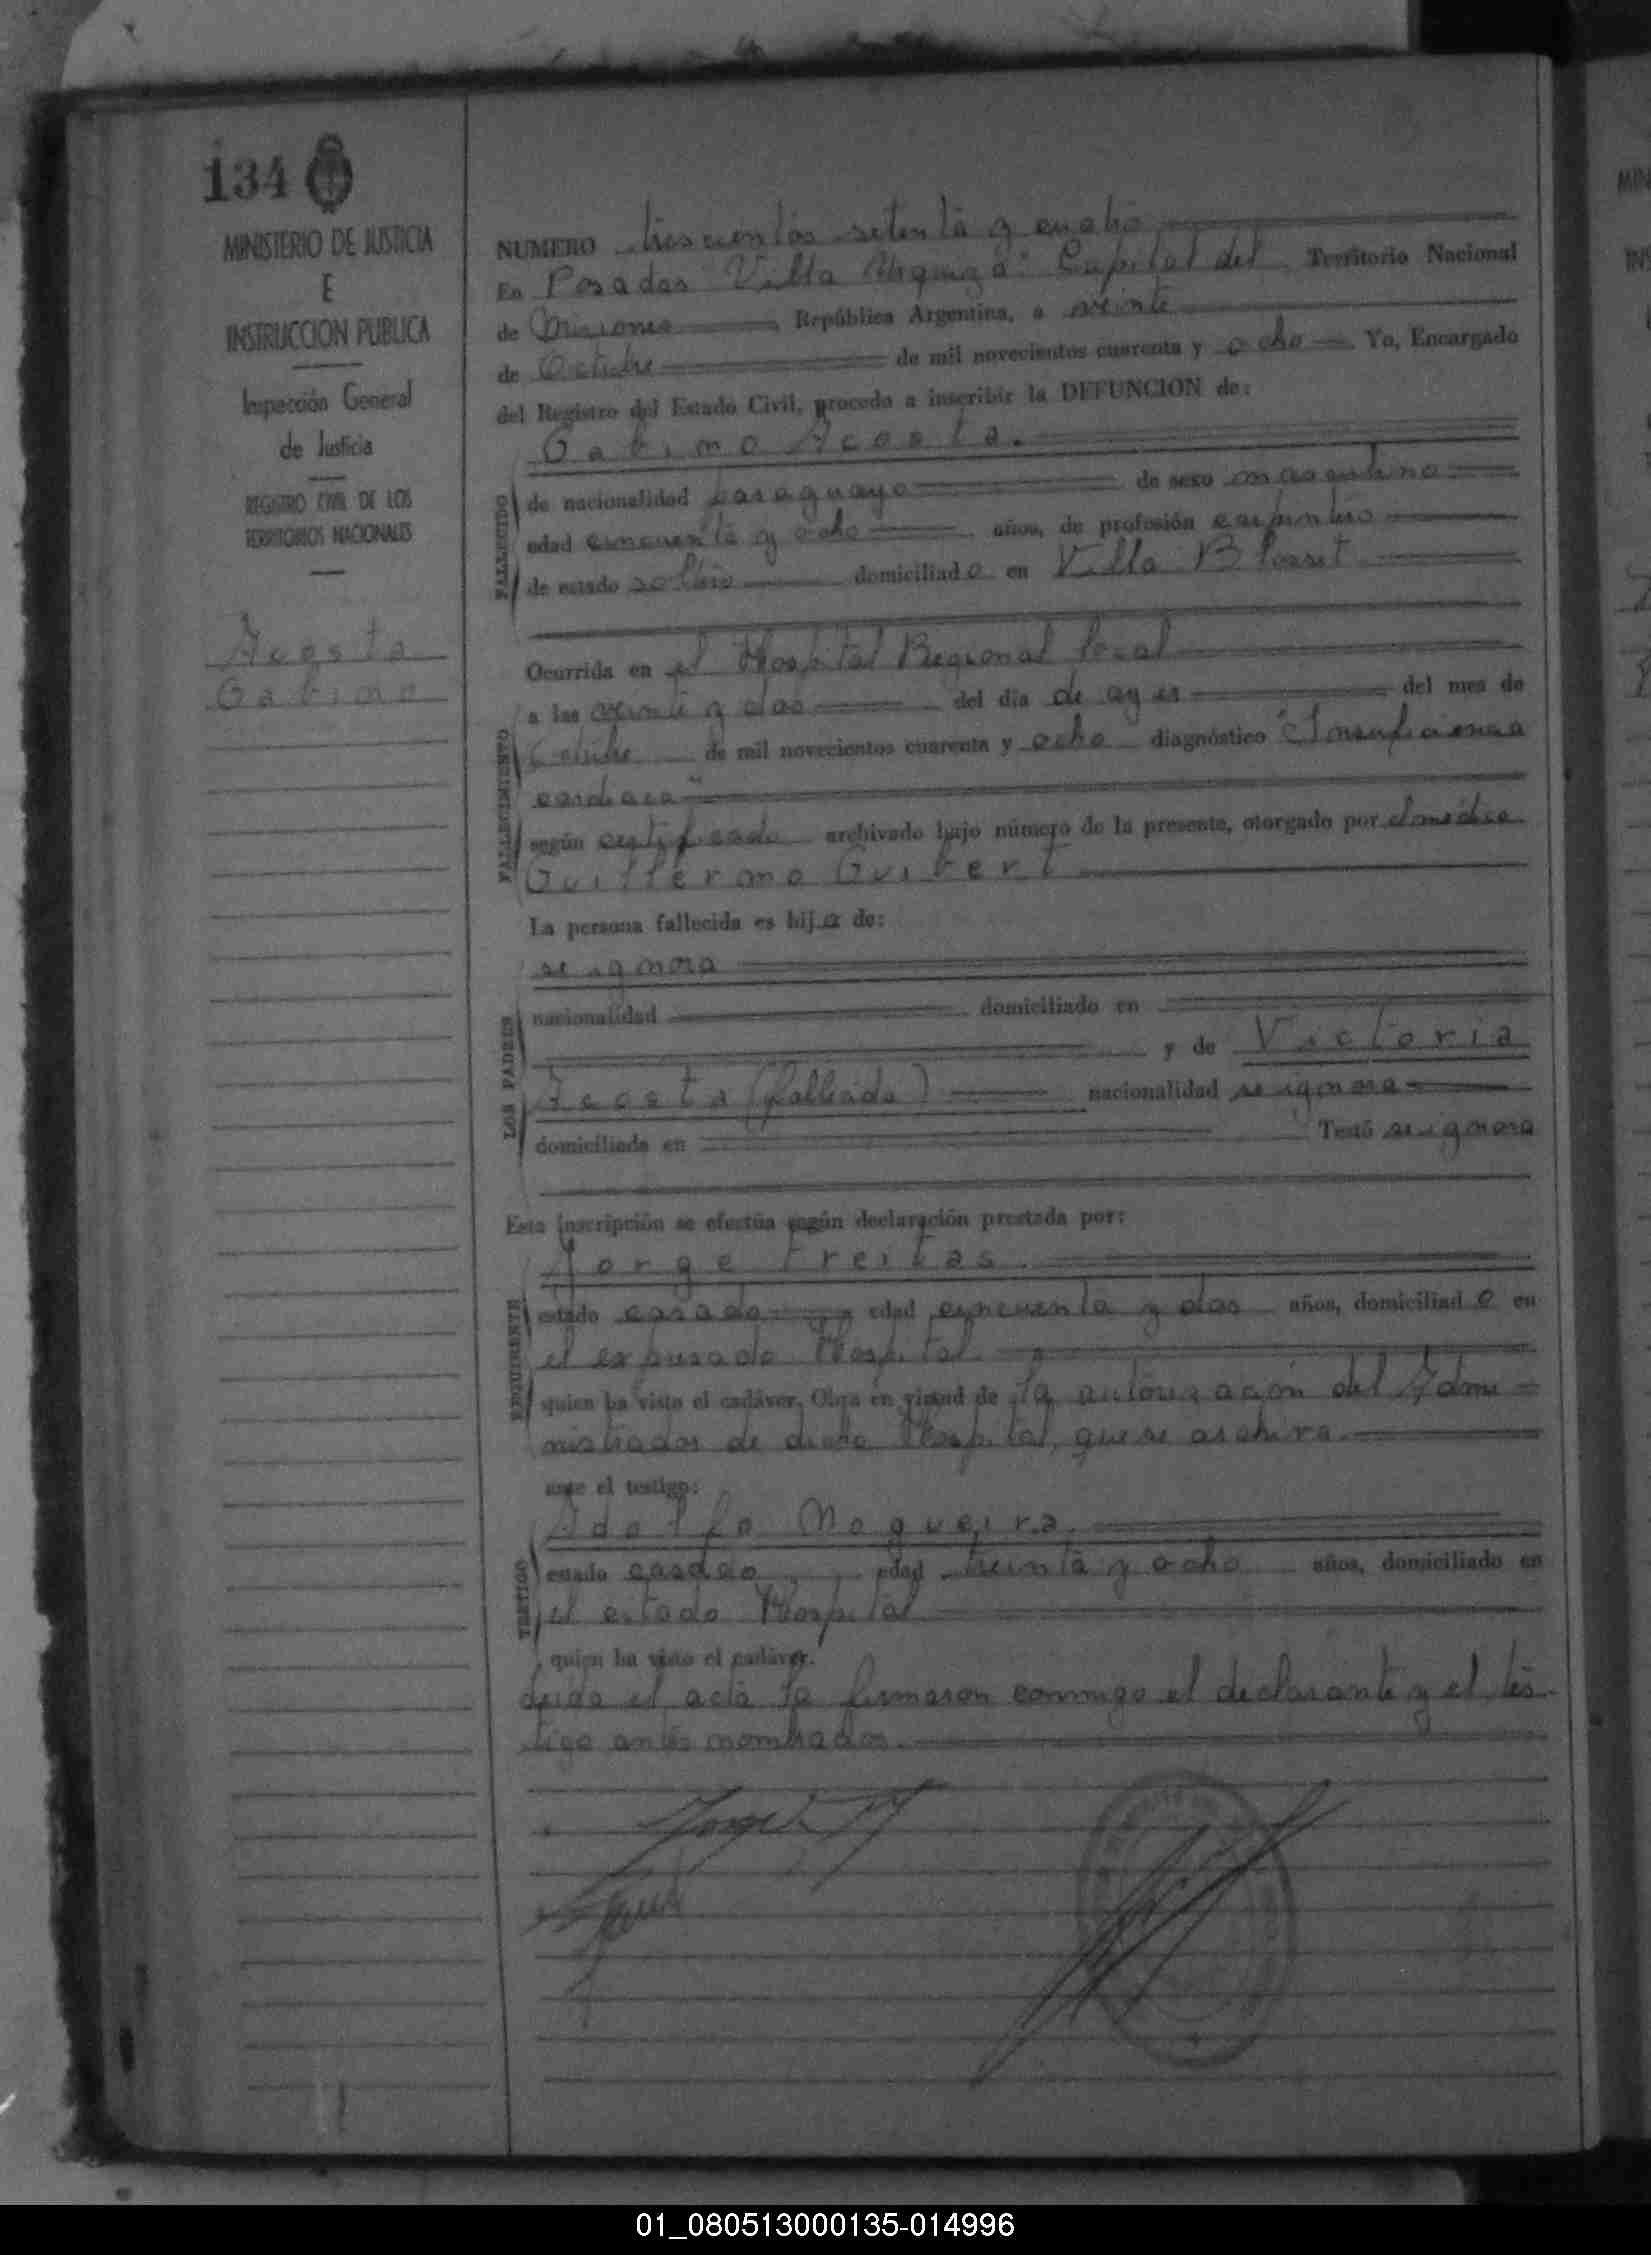 134
MINISTERIO DE JUSTICIA
E
INSTRUCCION PUBLICA
Inspección General
de Justicia
REGISTRO CIVIL DE LOS
TERRITORIOS NACIONALES
Acosta
Gabino
NUMERO trescientos setenta y cuatro
En Posadas "Villa Urquiza" Capital del Territorio Nacional
de Misiones República Argentina, a veinte
de Octubre de mil novecientos cuarenta y ocho Yo, Encargado
del Registro del Estado Civil, procedo a inscribir la DEFUNCION de:
Gabino Acosta.
FALLECIDO
de nacionalidad paraguayo de sexo masculino
edad cincuenta y ocho años, de profesión carpintero
de estado soltero domiciliado en Villa Blosset
FALLECIMIENTO
Ocurrida en el Hospital Regional local
a las veinte y dos del día de ayer del mes de
Octubre de mil novecientos cuarenta y ocho diagnóstico "Insuficiencia
cardiaca"
según certificado archivado bajo número de la presente, otorgado por el médico
Guillermo Guibert
La persona fallecida es hijo de:
LOS PADRES
se ignora
nacionalidad domiciliado en
y de Victoria
Acosta (fallecida) nacionalidad se ignora
domiciliada en Testó se ignora
Esta inscripción se efectúa según declaración prestada por:
REQUIRENTE
Jorge Freitas.
estado casado edad cincuenta y dos años, domiciliado en
el expresado Hospital.
quien ha visto el cadáver. Obra en virtud de la autorización del Admi-
nistrador de dicho Hospital, que se archiva.
ante el testigo:
TESTIGO
Adolfo Nogueira.
estado casado edad treinta y ocho años, domiciliado en
el citado Hospital
quien ha visto el cadáver.
Leida el acta la firmaron conmigo el declarante y el tes-
tigo antes nombrados.
Jorge
01_080513000135-014996